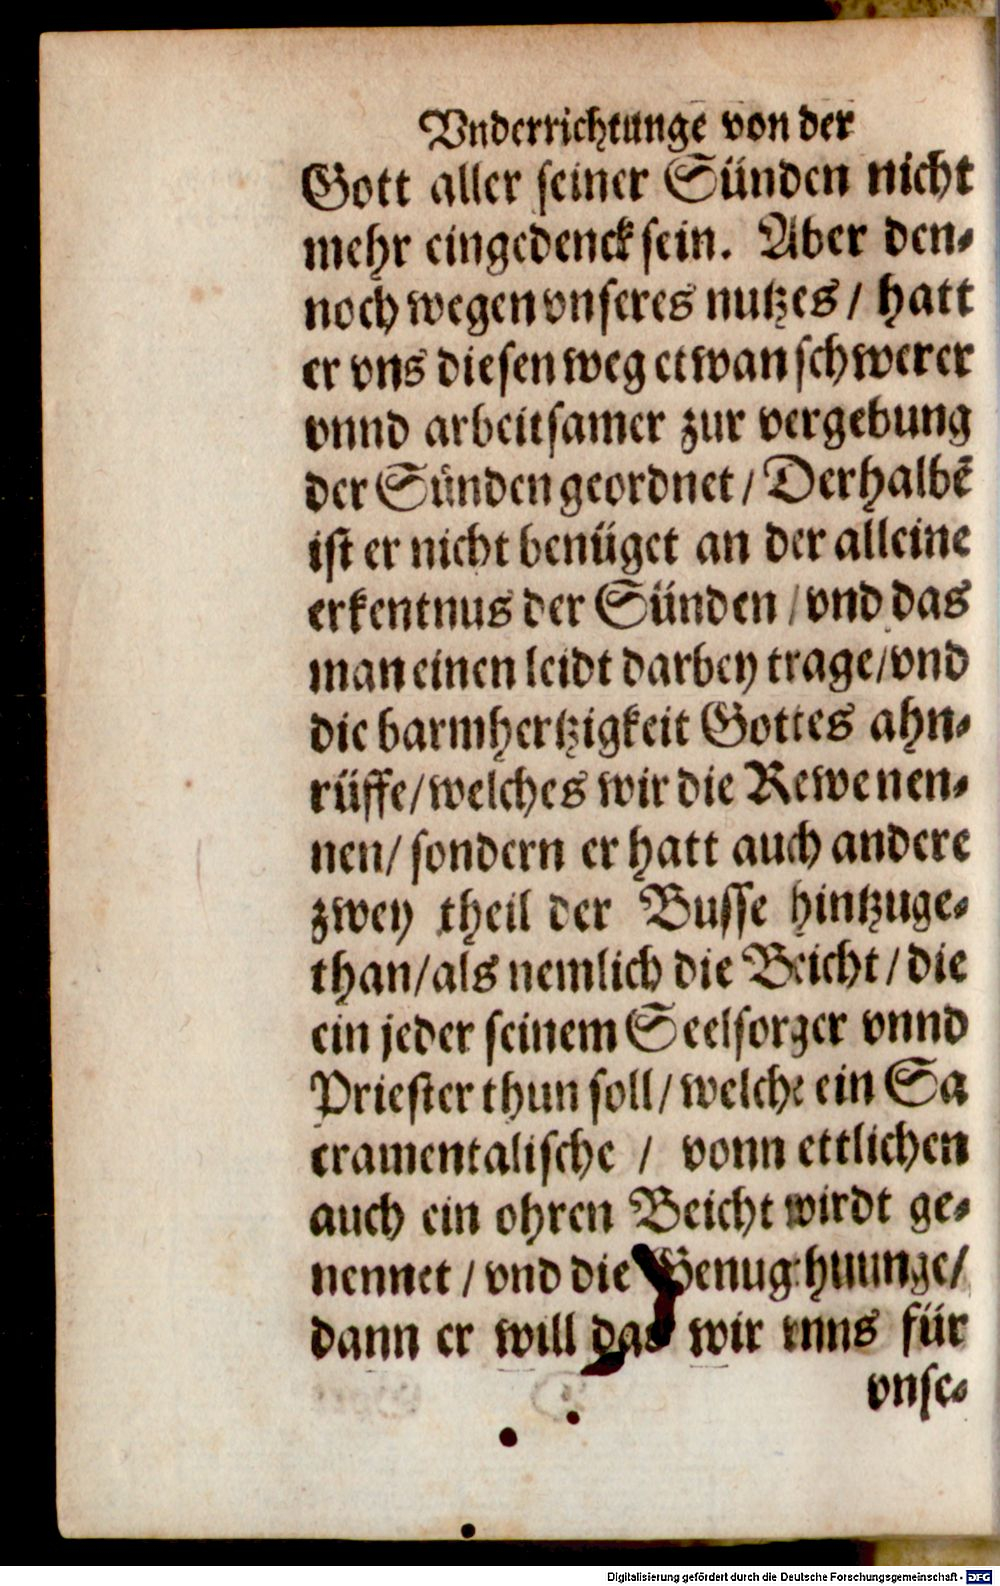 Vnderrichtunge von der
Gott aller seiner Sünden nicht
mehr eingedenck sein. Aber den-
noch wegen vnseres nutzes / hatt
er vns diesen weg etwan schwerer
vnnd arbeitsamer zur vergebung
der Sünden geordnet / Derhalbẽ
ist er nicht benüget an der alleine
erkentnus der Sünden / vnd das
man einen leidt darbey trage/vnd
die barmhertzigkeit Gottes ahn-
rüffe/welches wir die Rewe nen-
nen/ sondern er hatt auch andere
zwey theil der Busse hintzuge-
than/als nemlich die Beicht / die
ein jeder seinem Seelsorger vnnd
Priester thun soll/ welche ein Sa
cramentalische / vonn ettlichen
auch ein ohren Beicht wirdt ge-
nennet / vnd die Genugthuunge/
dann er will das wir vnns für
vnse-
Digitalisierung gefördert durch die Deutsche Forschungsgemeinschaft - DFG